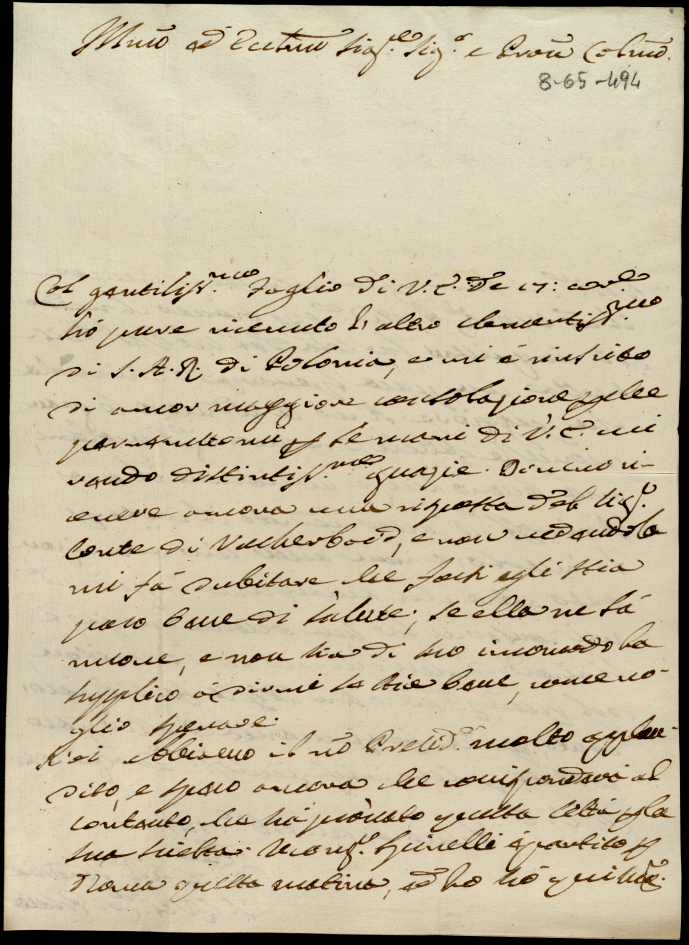 Illmo ed Eccellmo Sigre Sigr e Prone Colmo.
8-65-494
Col gentilissmo Foglio di V.E. de 17: corre
hò pure ricevuto l'altro clementissmo
di S.A.R. di Polonia, e mi è riuscito
di ancor maggior consolazione
le mani di V.E. mi
rendo distintissme grazie.
cevere ancora una risposta del Sigr
Conte di Vacherbard, e non vedendola
mi fà dubitare che forsi egli stia
poco bene di salute; se ella ne sà
nuove, e non sia di suo incomodo la
supplico a dirmi se stie bene, come vo-
glio sperare.
Qui abbiamo il nro molto applau-
dito, e spero ancora che corrisponderà al
contento, che hà provato questa Città p la
sua scielta. Spinelli è partito p
Roma questa matina, ed ho